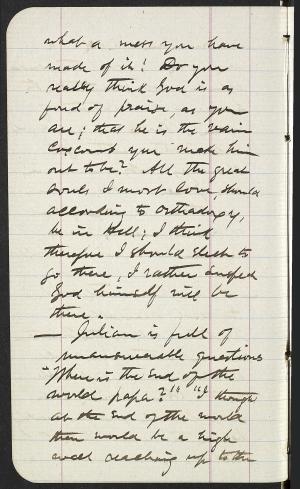 what a mess you have
made of it! Do you
really think God is as
fond of praise, as you
are; that he is the vain
coxcomb you make him
out to be? All the great
souls I most love, should
according to orthodoxy,
be in Hell; I think
therefore I should elect to
go there, I rather suspect
God himself will be
there.
— Julian is full of
unanswerable questions
"Where is the end of the
world papa?" "I thought
at the end of the world
there would be a high
wall reaching up to the